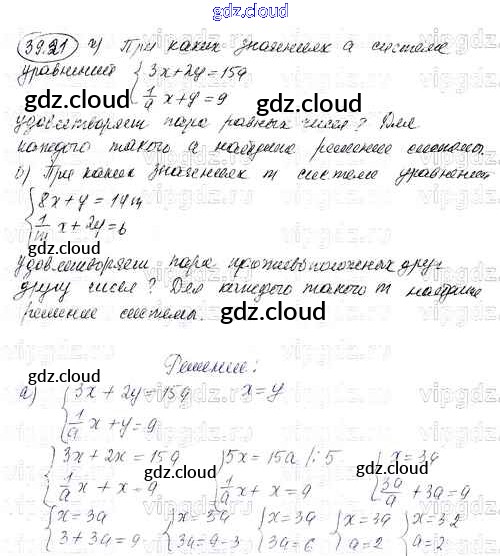 gdz.cloud
39.21 а) При каких значениях а система
уравнений { 3x+2y=15a
{ 1/a x+y=9
gdz.cloud gdz.cloud
удовлетворяет пара равных чисел? Для
каждого такого а найдите решение системы.
б) При каких значениях m система уравнений
{ 8x+y=14m
{ 1/m x+2y=6
gdz.cloud gdz.cloud
удовлетворяет пара противоположных друг
другу чисел? Для каждого такого m найдите
решение системы.
gdz.cloud
Решение:
gdz.cloud
а) { 3x+2y=15a x=y
{ 1/a x+y=9
{ 3x+2x=15a { 5x=15a |:5 { x=3a
gdz.cloud gdz.cloud
{ 1/a x+x=9 { 1/a x+x=9 { 3a/a +3a=9
{ x=3a { x=3a { x=3a { x=3a { x=3·2
{ 3+3a=9 { 3a=9-3 { 3a=6 { a=2 { a=2
gdz.cloud